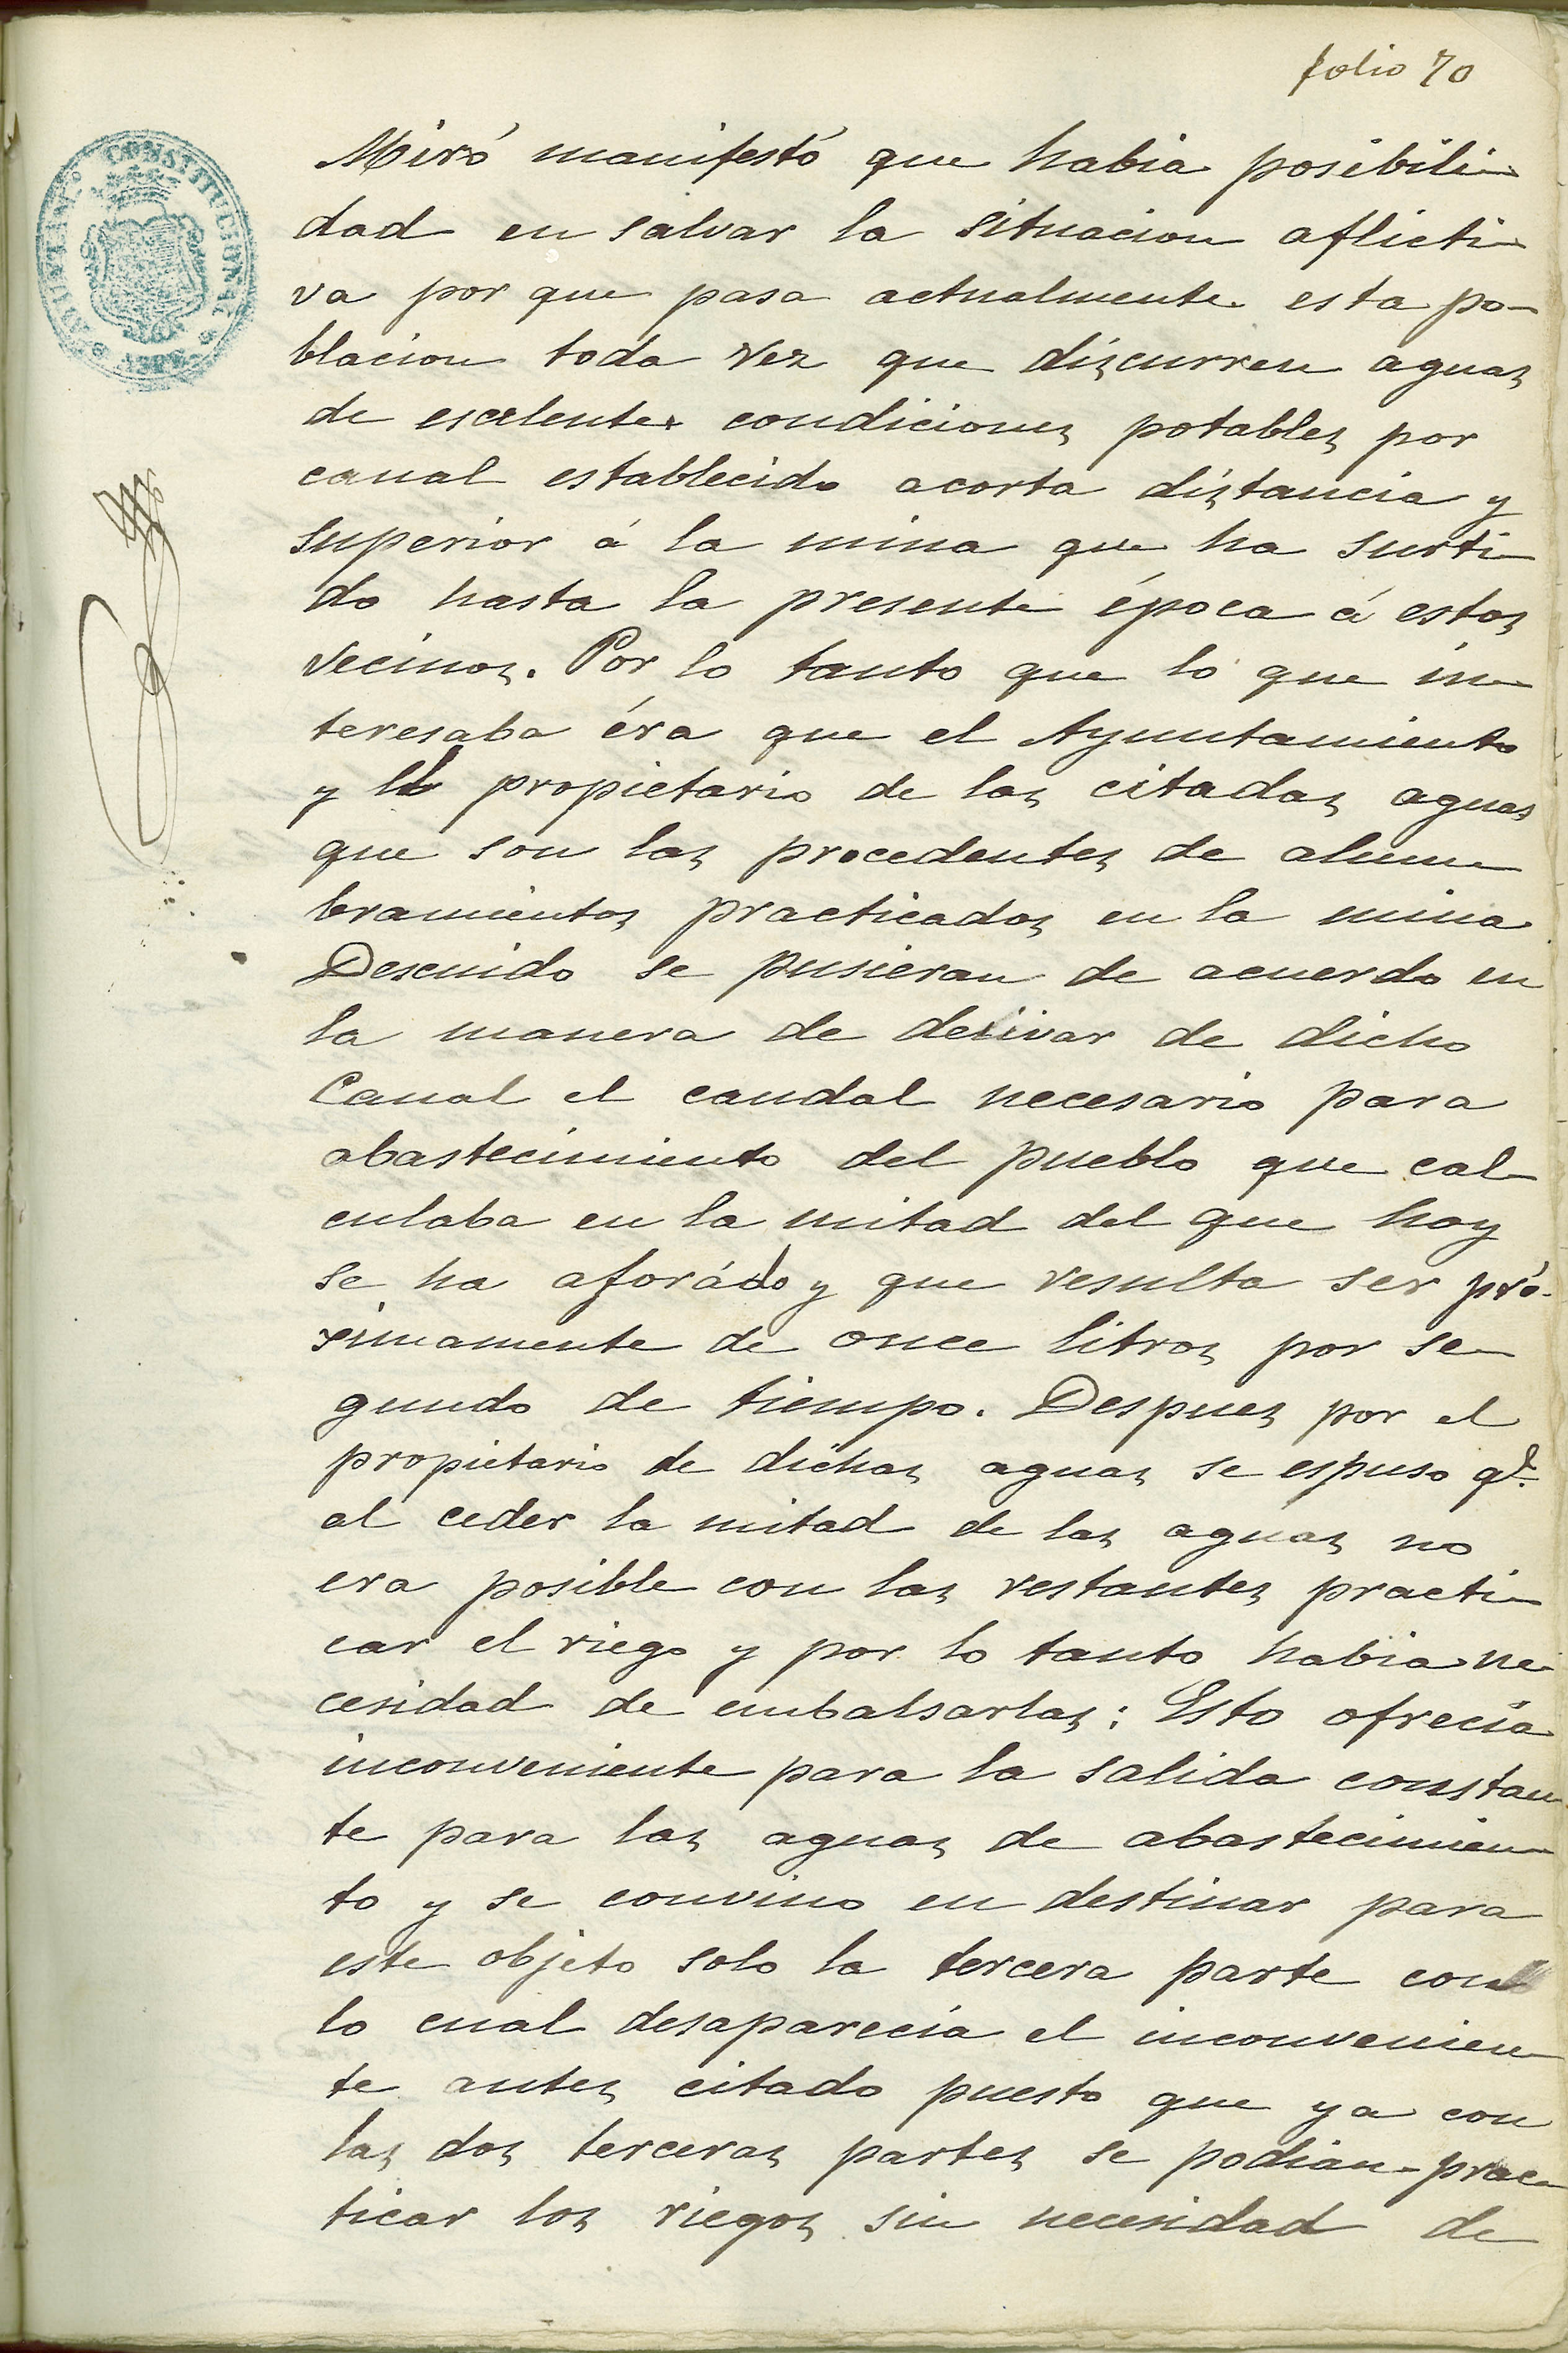 folio 70
Miró manifestó que habia posibili-
dad en salvar la situacion aflicti-
va por que pasa actualmente esta po-
blacion toda vez que discurren aguas
de escelentes condiciones potables por
canal establecido acorta distancia y
superior á la mina que ha surti-
do hasta la presente época á estos
vecinos. Por lo tanto que lo que in-
teresaba éra que el Ayuntamiento
y el propietario de las citadas aguas
que son las procedentes de alum-
bramientos practicados en la mina
Descuido se pusieran de acuerdo en
la manera de derivar de dicho
Canal el caudal necesario para
abastecimiento del pueblo que cal-
culaba en la mitad del que hoy
se ha aforádo y que resulta ser pró-
ximamente de once litros por se-
gundo de tiempo. Despues por el
propietario de dichas aguas se espuso qe.
al ceder la mitad de las aguas no
era posible con las restantes practi-
car el riego y por lo tanto habia ne-
cesidad de embalsarlas: Esto ofrecía
inconveniente para la salida constan-
te para las aguas de abastecimien-
to y se convino en destinar para
este objeto solo la tercera parte con
lo cual desaparecía el inconvenien-
te antes citado puesto que ya con
las dos terceras partes se podian prac-
ticar los riegos sin necesidad de
CONSTITUCIONAL